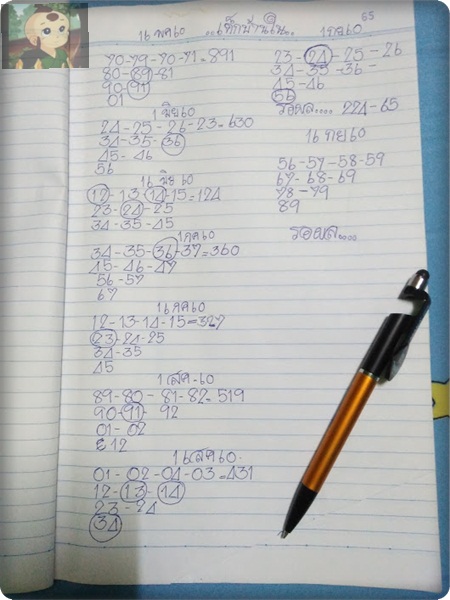 16 พค 60 ..เช็กบ้านใน..
70-79-70-71=891
80-89-81
90-91
01
1 มิย 60
24-25-26-23=630
34-35-36
45-46
56
16 มิย 60
12-13-14-15=124
23-24-25
34-35-45
1 กค 60
34-35-36-37=360
45-46-47
56-57
67
16 กค 60
12-13-14-15=327
23-24-25
34-35
45
1 สค.60
89-80-81-82=519
90-91-92
01-02
12
16 สค 60.
01-02-04-03=431
12-13-14
23-24
34
1 กย 60
65
23-24-25-26
34-35-36
45-46
56
รอผล.... 224-65
16 กย 60
56-57-58-59
67-68-69
78-79
89
รอผล....